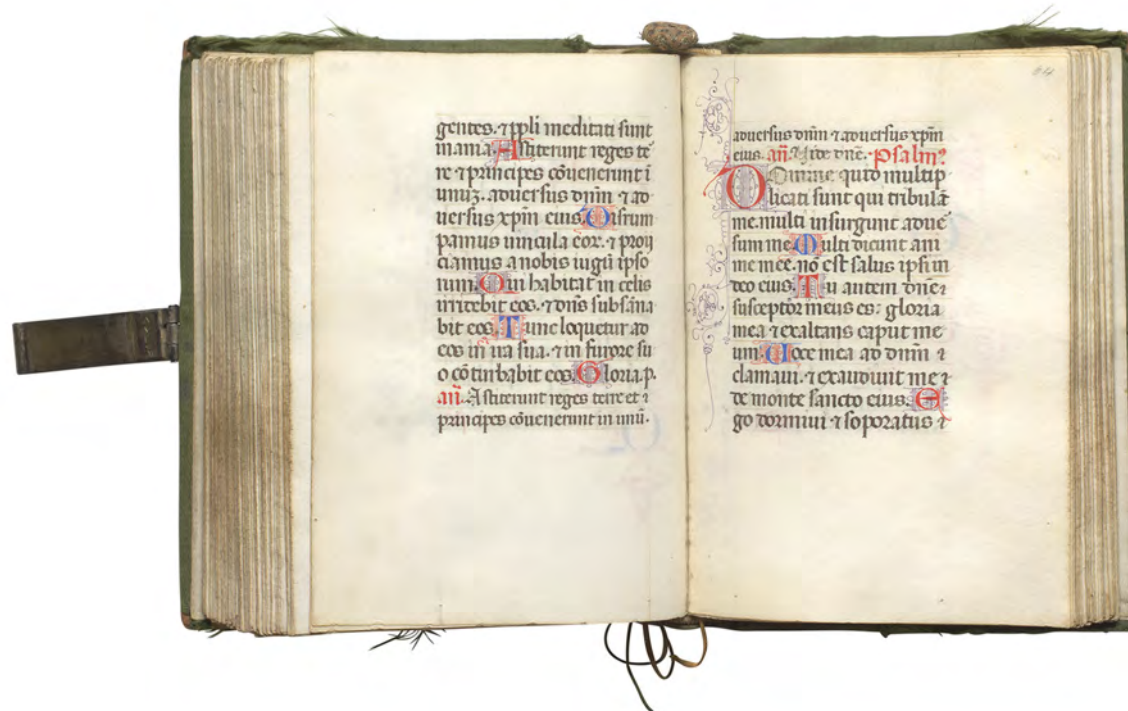 gentes. ⁊ ppli meditati sunt
inania. Astiterunt reges te
re ⁊ principes cōuenerunt ī
unuꝫ. aduersus dnīn ⁊ ad
uersus xpīn eius. Disrum
pamus uincula eoꝝ. ⁊ proij
ciamus a nobis iugū ipso
rum. Qui habitat in celis
irridebit eos. ⁊ dn̄s subsāna
bit eos. Tunc loquetur ad
eos in ira sua. ⁊ in furore su
o cō tur babit eos. Gloria. p.
an̄. Astiterunt reges terre et ⁊
principes cōuenerunt in unū.
aduersus dnm̄ ⁊ aduersus xpīn
eius. an̄. dn̄e. Psalmꝰ
Domine quid multip
licati sunt qui tribulāt
me. multi insurgunt aduē
sum me. Multi dicunt ani
me mee. nō est salus ipsi in
deo eius. Tu autem dn̄e ⁊
susceptor meus es: gloria
mea ⁊ exaltans caput me
um. Uoce mea ad dnm̄ ⁊
clamaui. ⁊ exaudiuit me ⁊
de monte sancto eius. E
go dormiui ⁊ soporatus ⁊